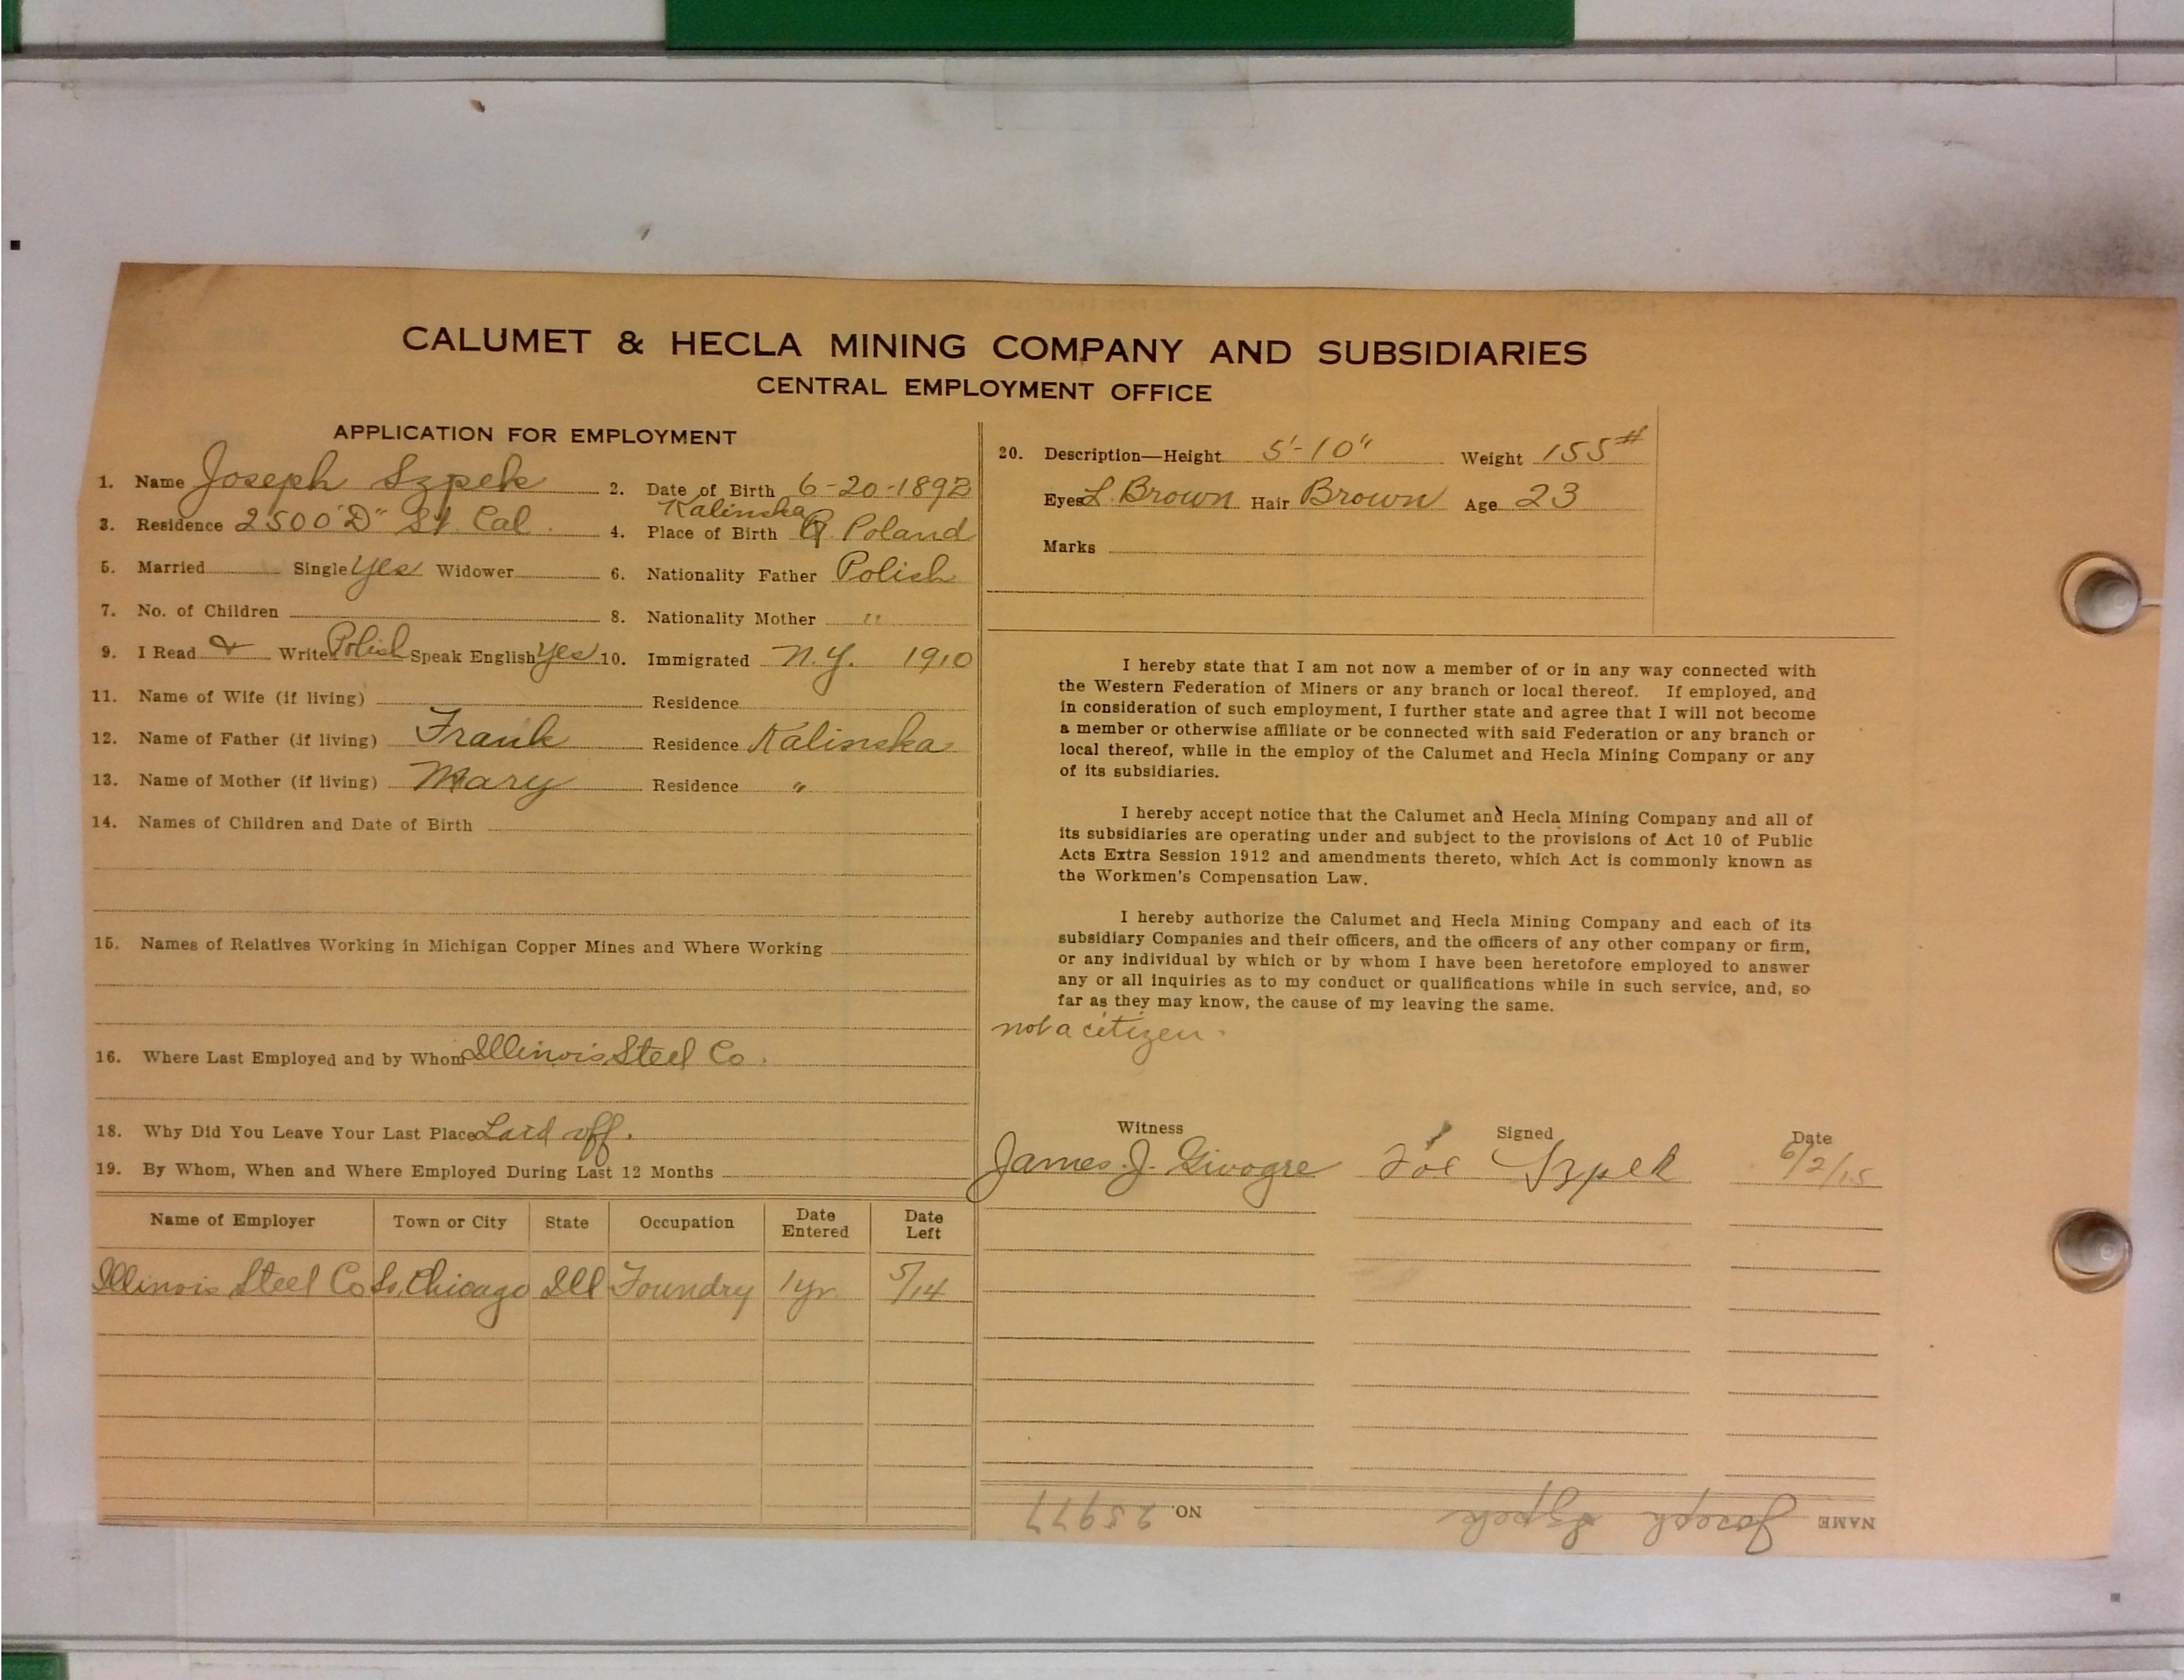 CALUMET & HECLA MINING COMPANY AND SUBSIDIARIES
CENTRAL EMPLOYMENT OFFICE
APPLICATION FOR EMPLOYMENT
1. Name Joseph Szpek 2. Date of Birth 6-20-1892
Kalinska
3. Residence 2500 "D" St. Cal. 4. Place of Birth R. Poland
5. Married Single Yes Widower 6. Nationality Father Polish
7. No. of Children 8. Nationality Mother "
9. I Read & Write Polish Speak English Yes 10. Immigrated N.Y. 1910
11. Name of Wife (if living) Residence
12. Name of Father (if living) Frank Residence Kalinska
13. Name of Mother (if living) Mary Residence "
14. Names of Children and Date of Birth
15. Names of Relatives Working in Michigan Copper Mines and Where Working
16. Where Last Employed and by Whom Illinois Steel Co.
18. Why Did You Leave Your Last Place Laid off.
19. By Whom, When and Where Employed During Last 12 Months
Name of Employer Town or City State Occupation Date Entered Date Left
Illinois Steel Co So. Chicago Ill Foundry 1 yr 5/14
20. Description—Height 5'-10" Weight 155#
Eyes L. Brown Hair Brown Age 23
Marks
I hereby state that I am not now a member of or in any way connected with
the Western Federation of Miners or any branch or local thereof. If employed, and
in consideration of such employment, I further state and agree that I will not become
a member or otherwise affiliate or be connected with said Federation or any branch or
local thereof, while in the employ of the Calumet and Hecla Mining Company or any
of its subsidiaries.
I hereby accept notice that the Calumet and Hecla Mining Company and all of
its subsidiaries are operating under and subject to the provisions of Act 10 of Public
Acts Extra Session 1912 and amendments thereto, which Act is commonly known as
the Workmen's Compensation Law.
I hereby authorize the Calumet and Hecla Mining Company and each of its
subsidiary Companies and their officers, and the officers of any other company or firm,
or any individual by which or by whom I have been heretofore employed to answer
any or all inquiries as to my conduct or qualifications while in such service, and, so
far as they may know, the cause of my leaving the same.
not a citizen.
Witness Signed Date
James. J. Givogre Joe Szpek 6/2/15
NAME Joseph Szpek NO. 25977